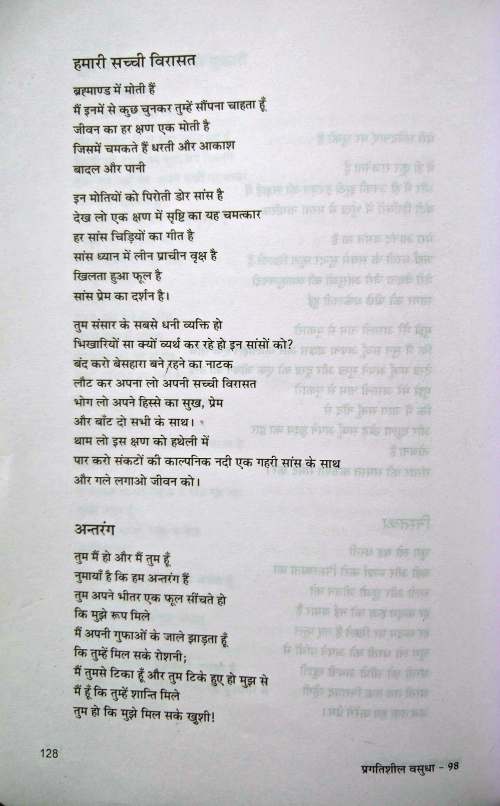 हमारी सच्ची विरासत
ब्रह्माण्ड में मोती हैं
मैं इनमें से कुछ चुनकर तुम्हें सौंपना चाहता हूँ
जीवन का हर क्षण एक मोती है
जिसमें चमकते हैं धरती और आकाश
बादल और पानी
इन मोतियों को पिरोती डोर सांस है
देख लो एक क्षण में सृष्टि का यह चमत्कार
हर सांस चिड़ियों का गीत है
सांस ध्यान में लीन प्राचीन वृक्ष है
खिलता हुआ फूल है
सांस प्रेम का दर्शन है।
तुम संसार के सबसे धनी व्यक्ति हो
भिखारियों सा क्यों व्यर्थ कर रहे हो इन सांसों को?
बंद करो बेसहारा बने रहने का नाटक
लौट कर अपना लो अपनी सच्ची विरासत
भोग लो अपने हिस्से का सुख, प्रेम
और बाँट दो सभी के साथ।
थाम लो इस क्षण को हथेली में
पार करो संकटों की काल्पनिक नदी एक गहरी सांस के साथ
और गले लगाओ जीवन को।
अन्तरंग
तुम मैं हो और मैं तुम हूँ
नुमायाँ है कि हम अन्तरंग हैं
तुम अपने भीतर एक फूल सींचते हो
कि मुझे रूप मिले
मैं अपनी गुफाओं के जाले झाड़ता हूँ
कि तुम्हें मिल सके रोशनी;
मैं तुमसे टिका हूँ और तुम टिके हुए हो मुझ से
मैं हूँ कि तुम्हें शान्ति मिले
तुम हो कि मुझे मिल सके खुशी!
128
प्रगतिशील वसुधा - 98